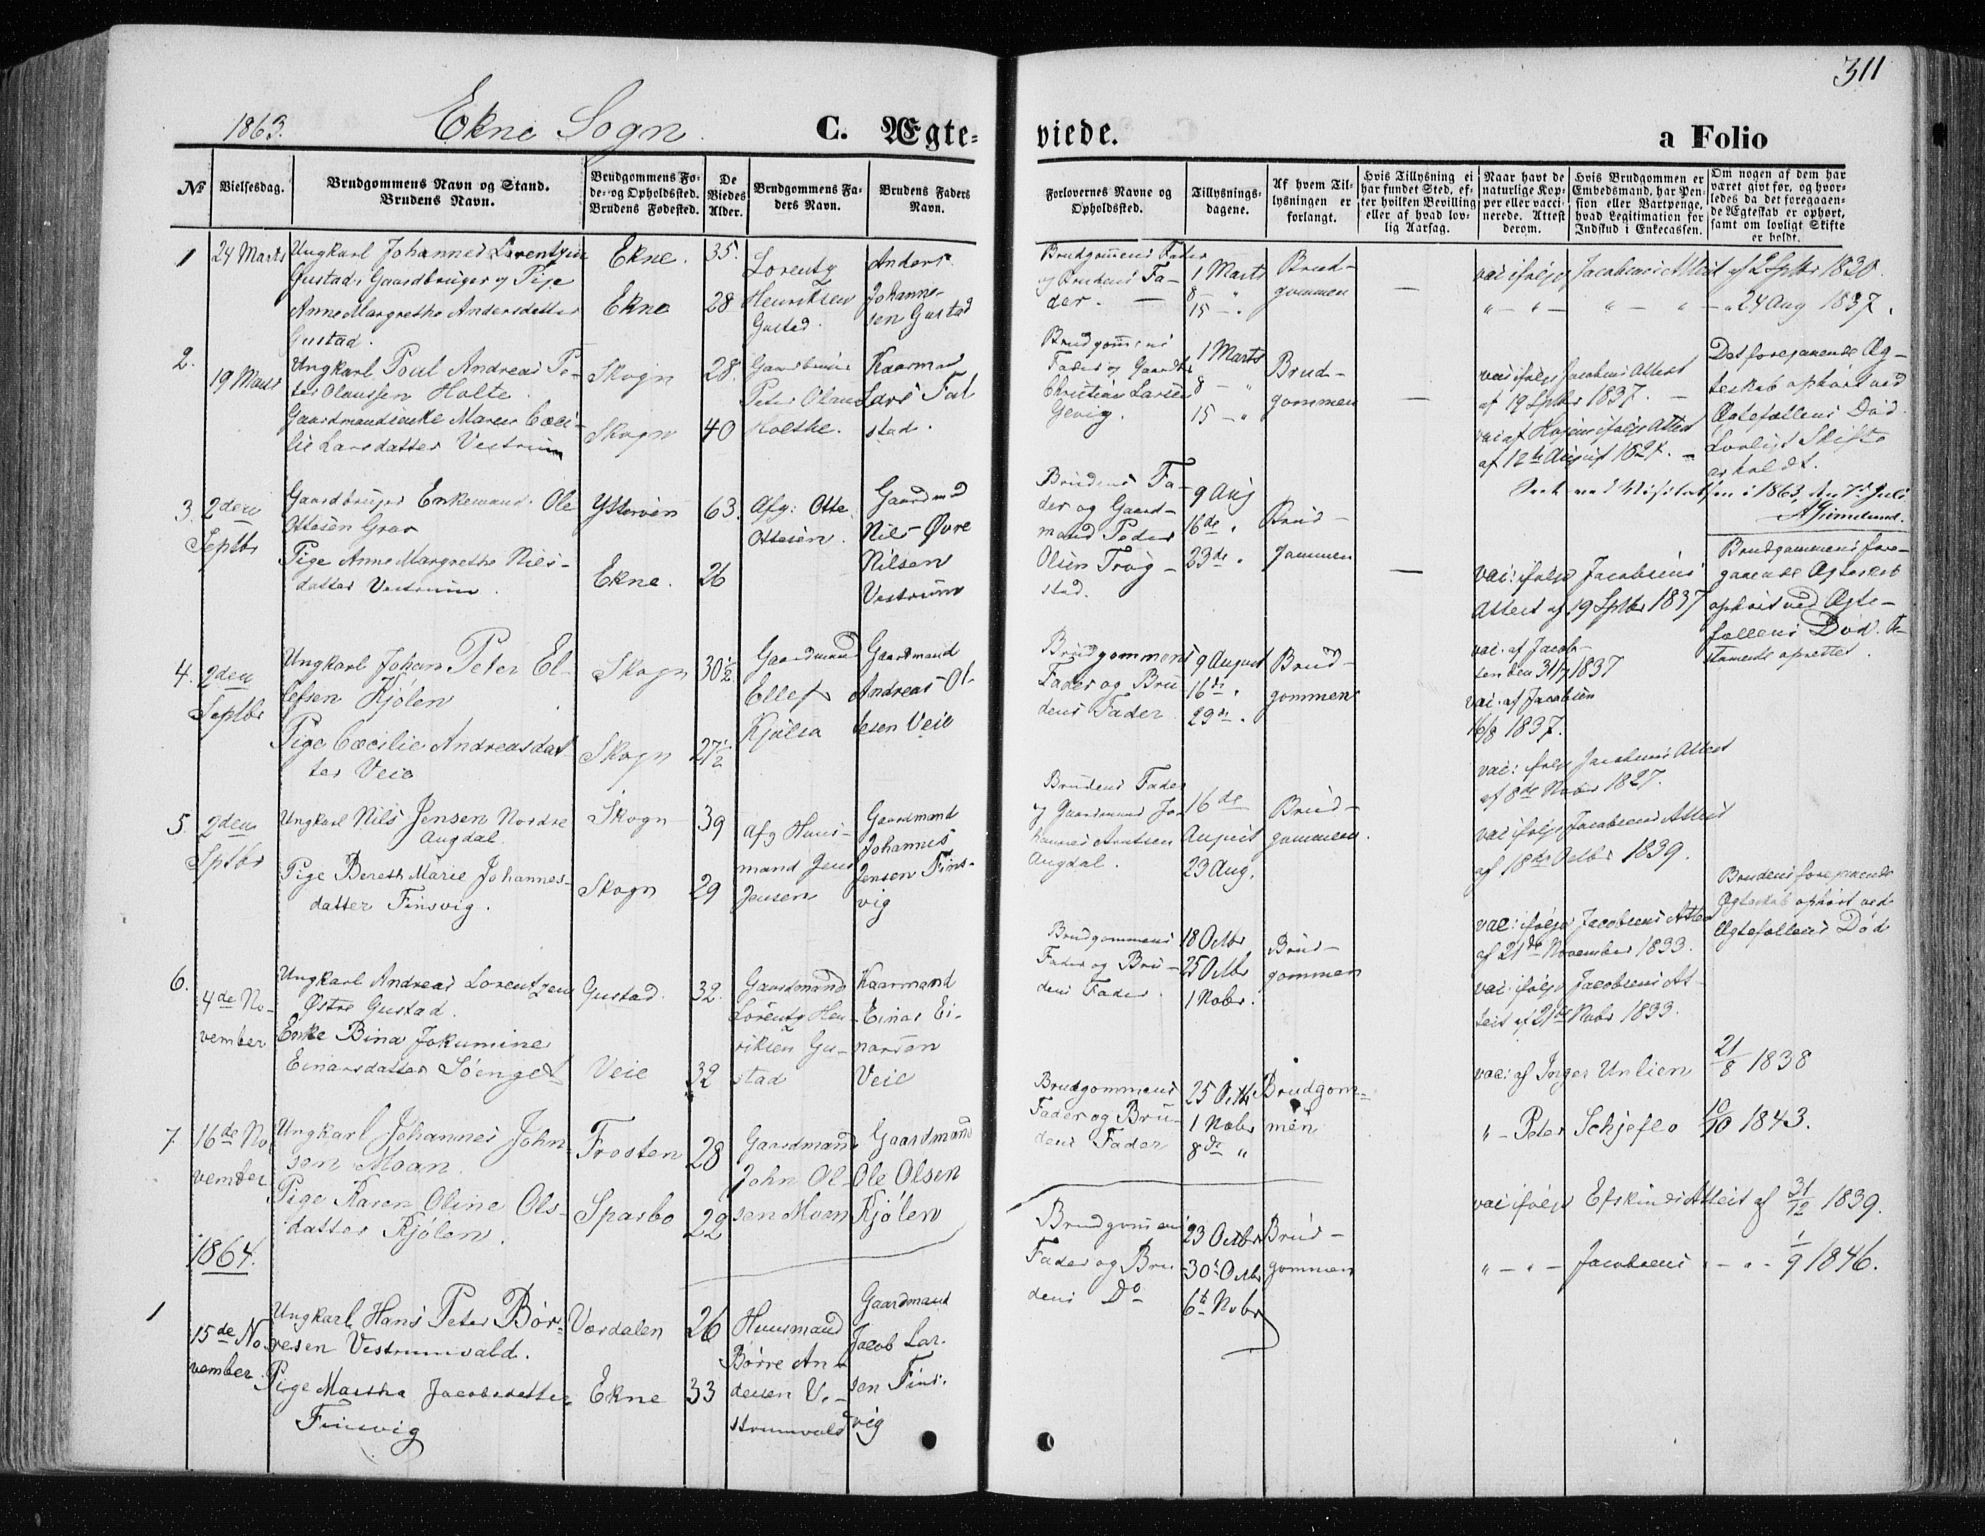 311
1863. Ekne Sogn. C. Ægte-
viede. a Folio
№
Vielsesdag.
Brudgommens Navn og Stand.
Brudens Navn.
Brudgommens Fø-
de- og Opholdssted.
Brudens Fødested.
De
Viedes
Alder.
Brudgommens Fa-
ders Navn.
Brudens Faders
Navn.
Forlovernes Navne og
Opholdssted.
Tillysnings-
dagene.
Af hvem Til-
lysningen er
forlangt.
Hvis Tillysning ei
har fundet Sted, ef-
ter hvilken Bevilling
eller af hvad lov-
lig Aarsag.
Naar havt de
naturlige Kop-
per eller vacci-
nerede. Attest
derom.
Hvis Brudgommen er
Embedsmand, har Pen-
sion eller Vartpenge,
hvad Legitimation for
Indskud i Enkecassen.
Om nogen af dem har
været givt før, og hvor-
ledes da det foregaaen-
de Ægteskab er ophørt,
samt om lovligt Skifte
er holdt.
1
24 Marts
Ungkarl Johannes Lorentzen
Gustad, Gaardbruger og Pige
Anne Margrethe Andersdatter
Gustad.
Ekne.
Ekne
35.
28
Lorentz
Henriksen
Gustad.
Anders
Johanne-
sen Gustad
Brudgommens Fader
og Brudens Fa-
der. —
1 Marts
8 — "
15 — "
Brud-
gommen
—
vac: ifølge Jacobsens Attest af 2 Septbr 1830.
" — " — " — " — " 24 Aug 1837.
2.
19 Marts
Ungkarl Poul Andreas Pe-
ter Olaussen Holte.
Gaardmandsenke Maren Cæci-
lie Larsdatter Vestrum
Skogn
Skogn
28.
40
Peter Olaus
Holthe.
Kaarmand
Lars Fal-
stad.
Brudgommens
Fader og Gaardbr
Christian Larsen
Gevig.
1 Marts
8 — "
15 — "
Brud-
gommen
—
vac: ifølge Jacobsens Attest
af 19 Septbr 1837. —
vac: af Hojem ifølge Attest
af 12te August 1827. —
Det foregaaende Æg-
teskab ophørt ved
Ægtefællens Død.
Lovligt Skifte
er holdt.
Seet ved Visitatsen i 1863, den 7de Juli
AGrimelund.
3.
2den
Septbr
Gaardbruger Enkemand Ole
Ottesen Grav
Pige Anne Margrethe Niels-
datter Vestrum.
Ytterøen
Ekne.
63.
26
Afg: Otte
Ottesen.
Gaardmd
Nils Øvre
Nilsen
Vestrum
Brudens Fa-
der og Gaard-
mand Peder
Olsen Trog-
stad.
9 Aug
16de "
23de "
Brud-
gommen
—
vac: ifølge Jacobsens
Attest af 19 Septbr 1837
Brudgommens fore-
gaaende Ægteskab
ophørt ved Ægte-
fællens Død.
oprettet.
4.
2den
Septbr
Ungkarl Johan Peter El-
lefsen Kjølen
Pige Cæcilie Andreasdat-
ter Veie
Skogn
Skogn
30½
27½
Gaardmand
Ellef
Kjølen
Gaardmand
Andreas Ol-
sen Veie
Brudgommens
Fader og Bru-
dens Fader
9 August
16de "
23de "
Brud-
gommen
vac. af Jacob-
sen den 31/7 1837
vac. af Jacobsen
16/8 1837.
5.
2den
Sptbr
Ungkarl Nils Jensen Nordre
Augdal.
Pige Bereth Marie Johannes-
datter Finsvig.
Skogn
Skogn
39
29
Afg Huus-
mand Jens
Jensen
Gaardmand
Johannes
Jensen Fins-
vig
Brudens Fader
og Gaardmand Jo-
hannes Arntsen
Augdal.
16de
August
23 Aug.
Brud-
gommen.
vac: ifølge Jacobsens Attest
af 8de Novbr 1827.
vac: ifølge Jacobsens Attest
af 18de Octbr 1839.
6.
4de No-
vember
Ungkarl Andreas Lorentzen
Østre Gustad.
Enke Bina Jokumine
Einarsdatter Søenget
Gustad.
Veie
32.
32
Gaardmand
Lorentz Hen-
riksen Gu-
stad
Kaarmand
Einar Ei-
narsøn
Veie
Brudgommens
Fader og Bru-
dens Fader.
18 Octbr
25 Octbr
1 Nobr.
Brud-
gommen
vac: ifølge Jacobsens Attest
af 21de November 1833.
vac: ifølge Jacobsens At-
test af 21de Nobr 1833.
Brudens foregaaende
Ægteskab ophørt ved
Ægtefællens Død
7.
16de No-
vember
Ungkarl Johannes John-
sen Moan.
Pige Karen Oline Ols-
datter Kjølen.
Frosten
Sparbo
28
22
Gaardmand
John Ol-
sen Moan
Gaardmand
Ole Olsen
Kjølen
Brudgommens
Fader og Bru-
dens Fader
25 Octbr
1 Nobr
8de "
Brudgom-
men
vac: af Inger Unlien 21/8 1838
" — Peter Schjeflo 10/10 1843.
1864.
1
15de No-
vember.
Ungkarl Hans Peter Bør-
resen Vestrumvald.
Pige Martha Jacobsdatter
Finsvig
Værdalen
Ekne
26
33
Huusmand
Børre An-
dersen Ve-
strumvald
Gaardmand
Jacob Lar-
sen Fins-
vig
Brudgommens
Fader og Bru-
dens Do
23 Octbr
30te Octbr
6te Nobr
Brud-
gommen
vac: ifølge Efskinds Attest af 31/12 1839.
" — " — Jacobsens " — " — 1/9 1846.